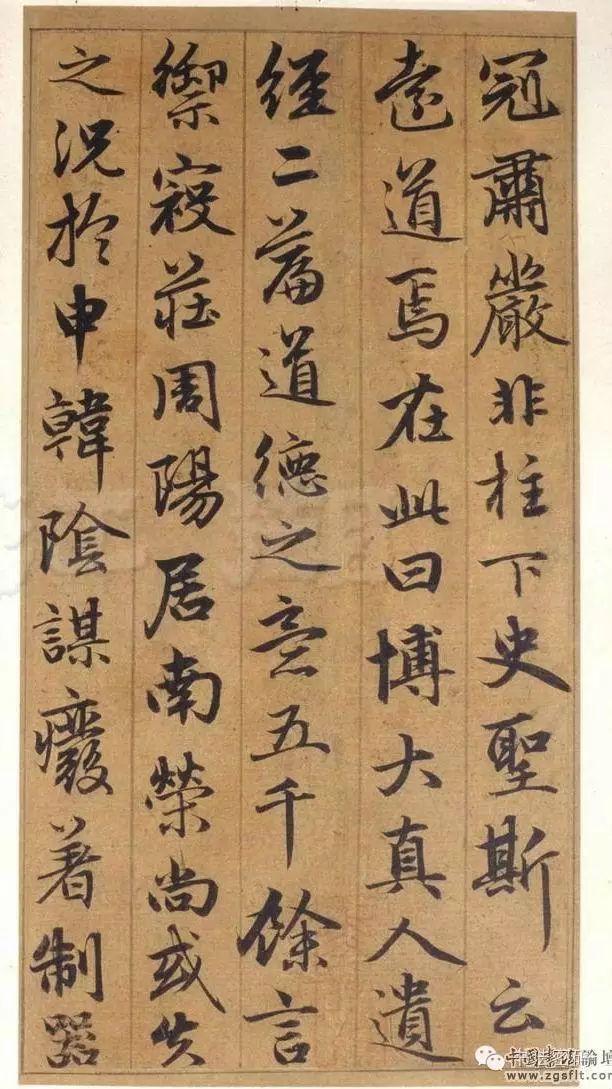 冠肅嚴非柱下史聖斯云
遠道焉在此曰博大真人遺
經二篇道德之意五千餘言
禦寇莊周陽居南榮尚或失
之況於申韓陰謀癈著制器
www.zgsflt.com